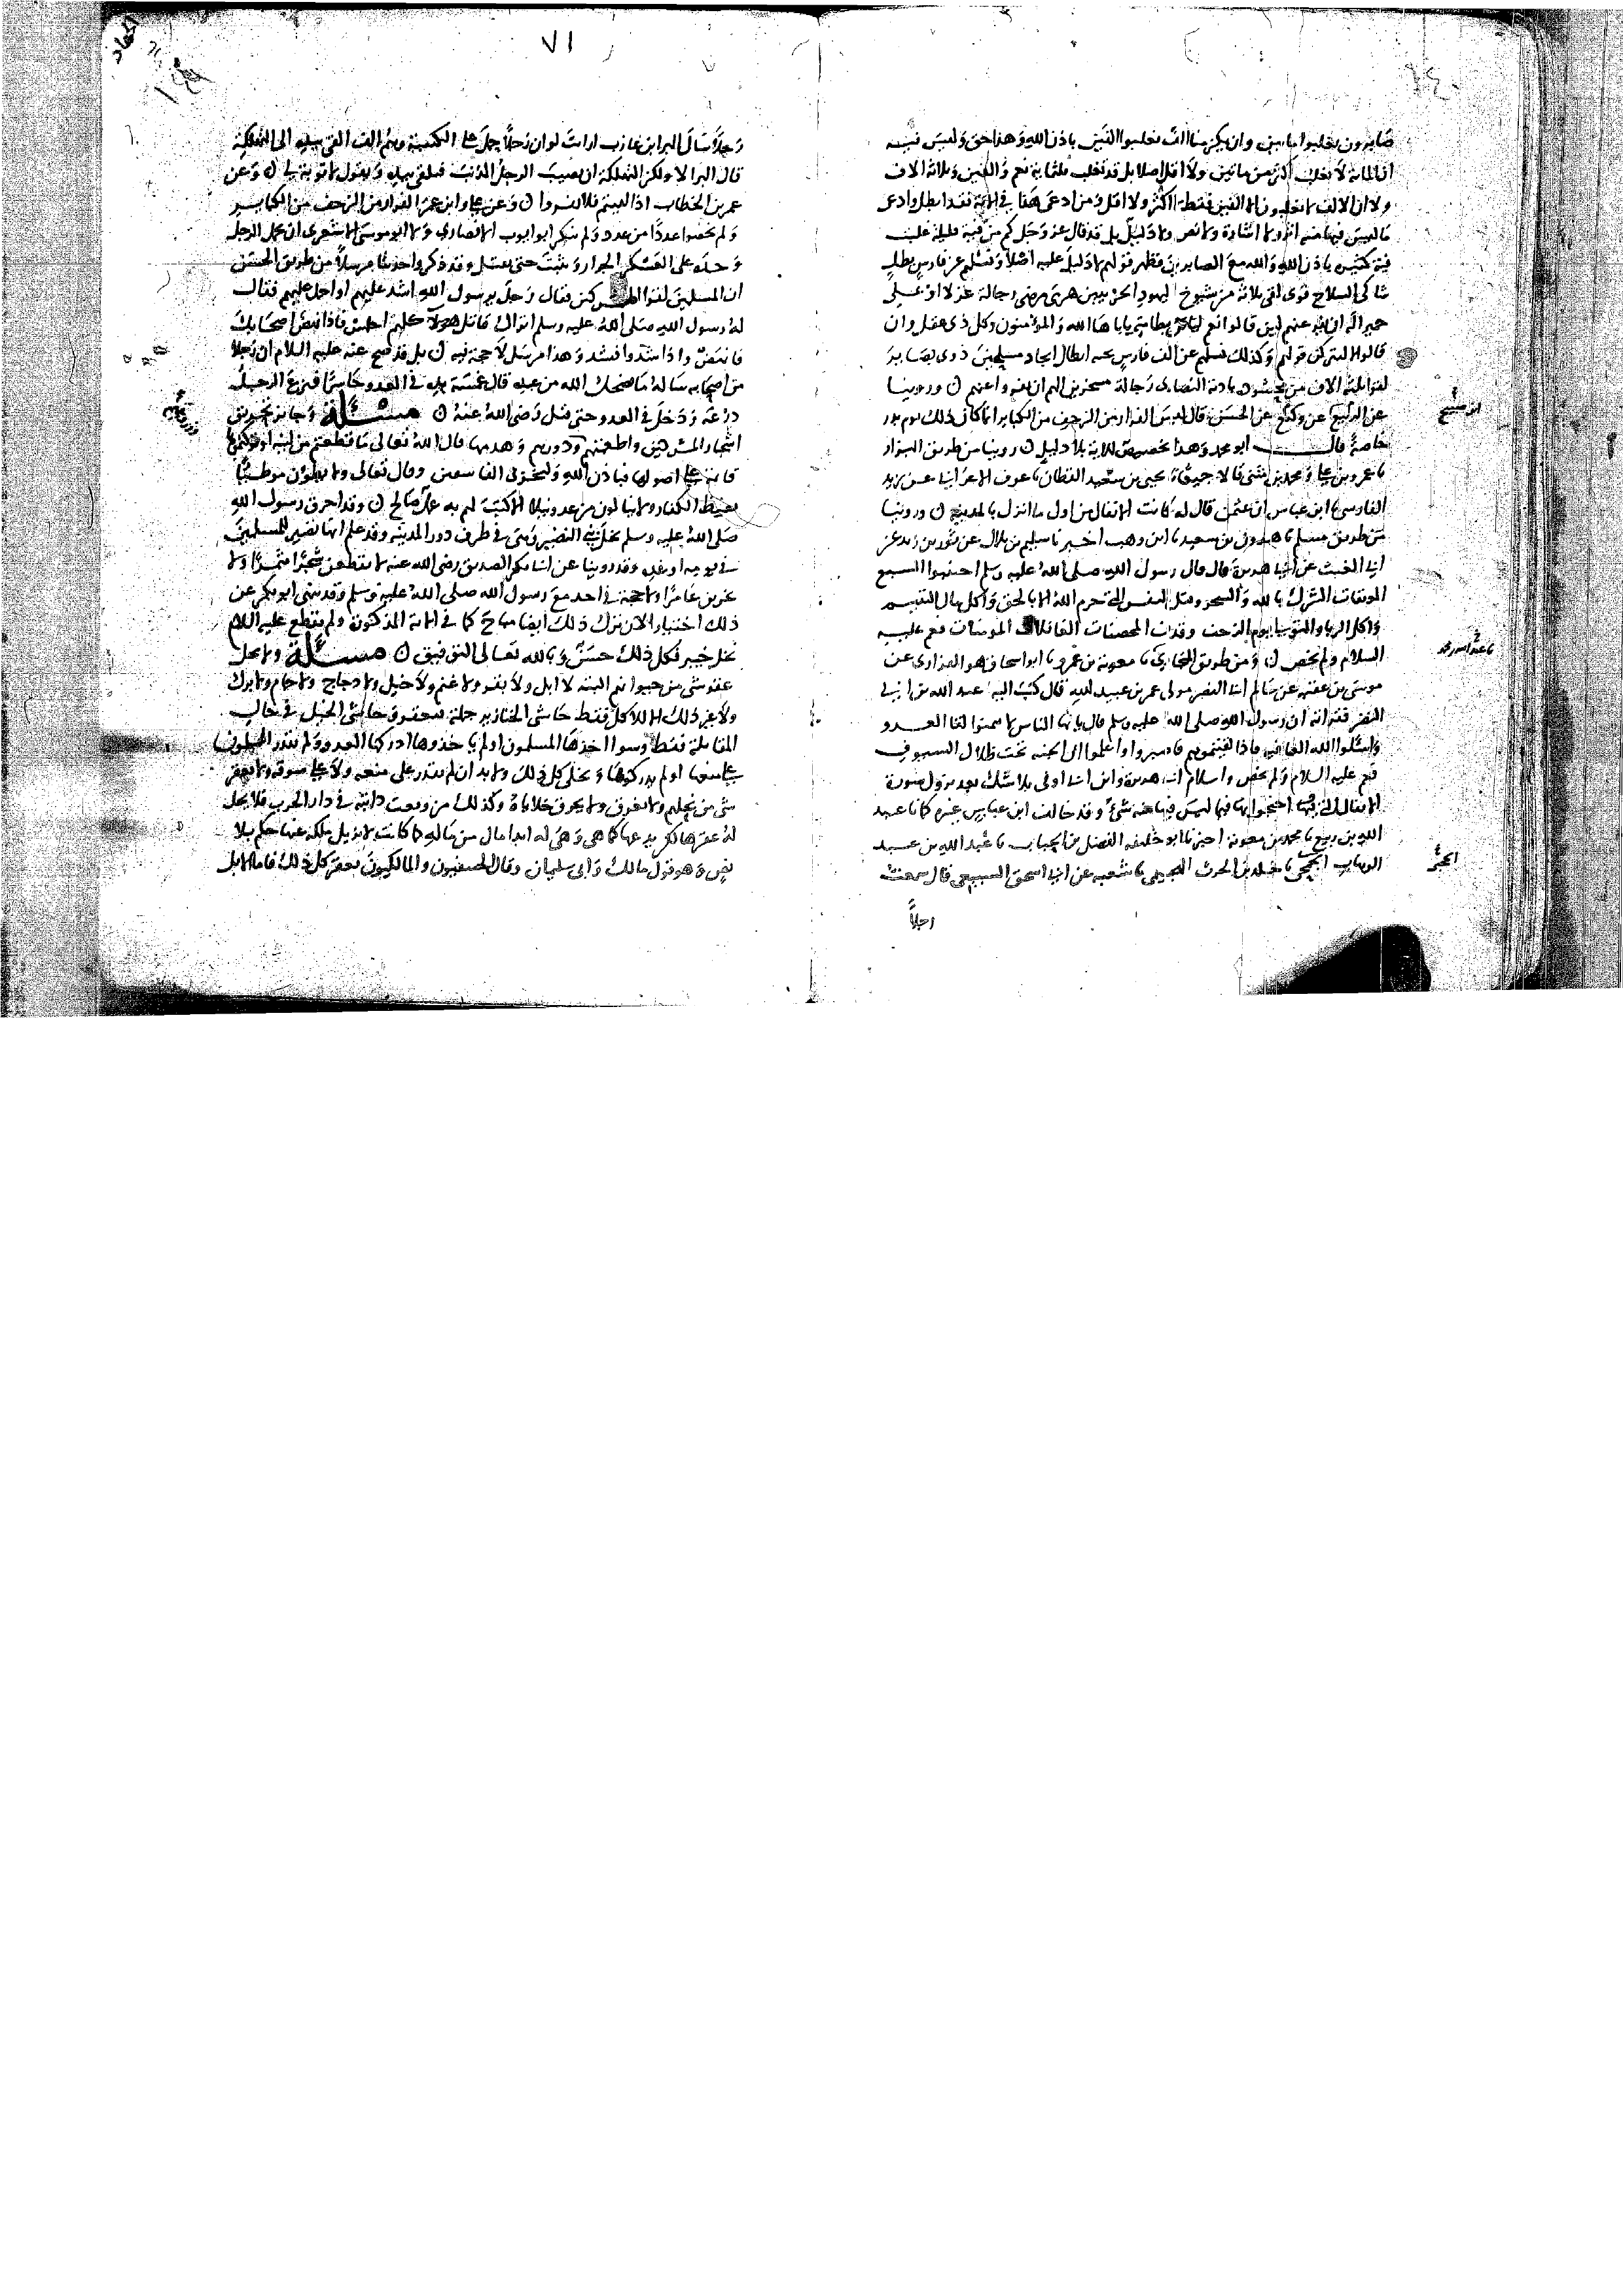 صابرون يغلبوا مايتين وان يكن منكم الف يغلبوا الفين باذن الله وهذا حق وليس فيه
ان المائة لا تغلب اكثر من مائتين ولا اقل اصلا بل قد تغلب ثلثمائة نعم والفين وثلاثة الاف
ولا ان الالف لا يغلبون الا الفين فقط لا اكثر ولا اقل ومن ادعى هذا في الاية فقد ابطل وادعى
ما ليس فيها منه اثر ولا اشارة ولا نص ولا دليل بل قد قال عز وجل كم من فية قليلة غلبت
فية كثيرة باذن الله والله مع الصابرين فظهر قولهم لا دليل عليه اصلا ونسلهم عن فارس بطل
شاكي السلاح قوي لقي ثلاثة من شيوخ اليهود الحربيين هرمى مرضى رجالة عزلا او على
حمير اله ان يفر عنهم لين قالوا نعم لياتن بطامة ياباها الله والمؤمنون وكل ذي عقل وان
قالوا لا ليتركن قولهم وكذلك نسلهم عن الف فارس نخبة ابطال امجاد مسلمين ذوي بصاير
لقوا ثلثة الاف من محشودي بادية النصارى رجالة مسخرين الهم ان يفروا عنهم ن وروينا
عن الربيع عن الحسن قال ليس الفرار من الزحف من الكباير انما كان ذلك يوم بدر
خاصة قال ابو محمد وهذا تخصيص للاية بلا دليل ن روينا من طريق البزار
نا عمرو بن علي ومحمد بن مثنى قالا جميعا نا يحيى بن سعيد القطان نا عوف الاعرابي عن يزيد
الفارسي نا ابن عباس ان عثمن قال له كانت الانفال من اول ما انزل بالمدينة ن وروينا
من طريق مسلم نا هرون بن سعيد نا ابن وهب اخبرنا سليمن بن بلال عن ثور بن زيد عن
ابي الغيث عن ابي هريرة قال قال رسول الله صلى الله عليه وسلم اجتنبوا السبع
الموبقات الشرك بالله والسحر وقتل النفس التي حرم الله الا بالحق واكل مال اليتيم
واكل الربا والتولي يوم الزحف وقذف المحصنات الغافلات المومنات فعم عليه
السلام ولم يخص ن ومن طريق البخاري نا معوية بن عمرو نا ابو اسحاق هو الفزاري عن
موسى بن عقبة عن سالم ابي النضر مولى عمر بن عبيد الله قال كتب اليه عبد الله بن ابي
ان رسول الله صلى الله عليه وسلم قال يا ايها الناس لا تتمنوا لقا العدو
واسئلوا الله العافية فاذا لقيتموهم فاصبروا واعلموا ان الجنة تحت ظلال السيوف
فعم عليه السلام ولم يخص واسلام ابي هريرة وابن ابي اوفى بلا شك بعد نزول سورة
الانفال التي فيها الاية التي احتجوا بها فيما ليس فيها منه شئ وقد خالف ابن عباس غيره كما نا عبد
الله بن ربيع نا محمد بن معوية اخبرنا ابو خليفة الفضل بن الحباب نا عبد الله بن عبد
الوهاب الحجبي نا خالد بن الحرث الهجيمي نا شعبة عن ابي اسحق السبيعي قال سمعت
رجلا
٧١
الجهاد
رجلا سأل البرا بن عازب ارايت لو ان رجلا حمل على الكتيبة وهم الف القى بيده الى التهلكة
قال البرا لا ولكن التهلكة ان يصيب الرجل الذنب فيلقي بيده ويقول لا توبة لي ن وعن
عمر بن الخطاب اذا لقيتم فلا تفروا ن وعن علي وابن عمر الفرار من الزحف من الكباير
ولم يخصوا عددا من عدد ولم ينكر ابو ايوب الانصاري ولا ابو موسى الاشعري ان يحمل الرجل
وحده على العسكر الجرار ويثبت حتى يقتل وقد ذكروا حديثا مرسلا من طريق الحسن
ان المسلمين لقوا المشركين فقال رجل يرسول الله اشد عليهم او احمل عليهم فقال
له رسول الله صلى الله عليه وسلم اتراك قاتل هولا كلهم اجلس فاذا نهض اصحابك
فانهض واذا شدوا فشد وهذا مرسل لا حجة فيه ن بل قد صح عنه عليه السلام ان رجلا
من اصحابه سأله ما يضحك الله من عبده قال غمسه يده في العدو حاسرا فنزع الرجل
درعه ودخل في العدو حتى قتل رضي الله عنه ن مسئلة وجايز تحريق
اشجار المشركين واطعمتهم ودورهم وهدمها قال الله تعالى ما قطعتم من لينة او تركتموها
قايمة على اصولها فباذن الله وليخزي الفاسقين وقال تعالى ولا يطئون موطيا
يغيظ الكفار ولا ينالون من عدو نيلا الا كتب لهم به عمل صالح ن وقد احرق رسول الله
صلى الله عليه وسلم نخل بني النضير وهي في طرف دور المدينة وقد علم انها تصير للمسلمين
في يومه او غده وقد روينا عن ابي بكر الصديق رضي الله عنه لا تقطعن شجرا مثمرا ولا
تخربن عامرا ولا حجة في احد مع رسول الله صلى الله عليه وسلم وقد ينهى ابو بكر عن
ذلك اختيارا لان ترك ذلك ايضا مباح كما في الاية المذكورة ولم يقطع عليه السلام
نخل خيبر فكل ذلك حسن وبالله تعالى التوفيق ن مسئلة ولا يحل
عقر شي من حيوانهم البتة لا ابل ولا بقر ولا غنم ولا خيل ولا دجاج ولا حمام ولا اوز ولا برك
ولا غير ذلك الا للاكل فقط حاشى الخنازير جملة فتعقر وحاشى الخيل في حال
المقاتلة فقط وسوا اخذها المسلمون او لم ياخذوها ادركها العدو ولم يقدر المسلمون
على منعها او لم يدركوها ويخلى كل ذلك ولا بد ان لم يقدر على منعه ولا على سوقه ولا يعقر
شي من نحلهم ولا يغرق ولا تحرق خلاياه وكذلك من وقعت دابته في دار الحرب فلا يحل
له عقرها لكن يدعها كما هي وهي له ابدا مال من ماله كما كانت لا يزيل ملكه عنها حكم بلا
نص وهو قول مالك وابي سليمان وقال الحنفيون والمالكيون يعقر كل ذلك فاما الابل